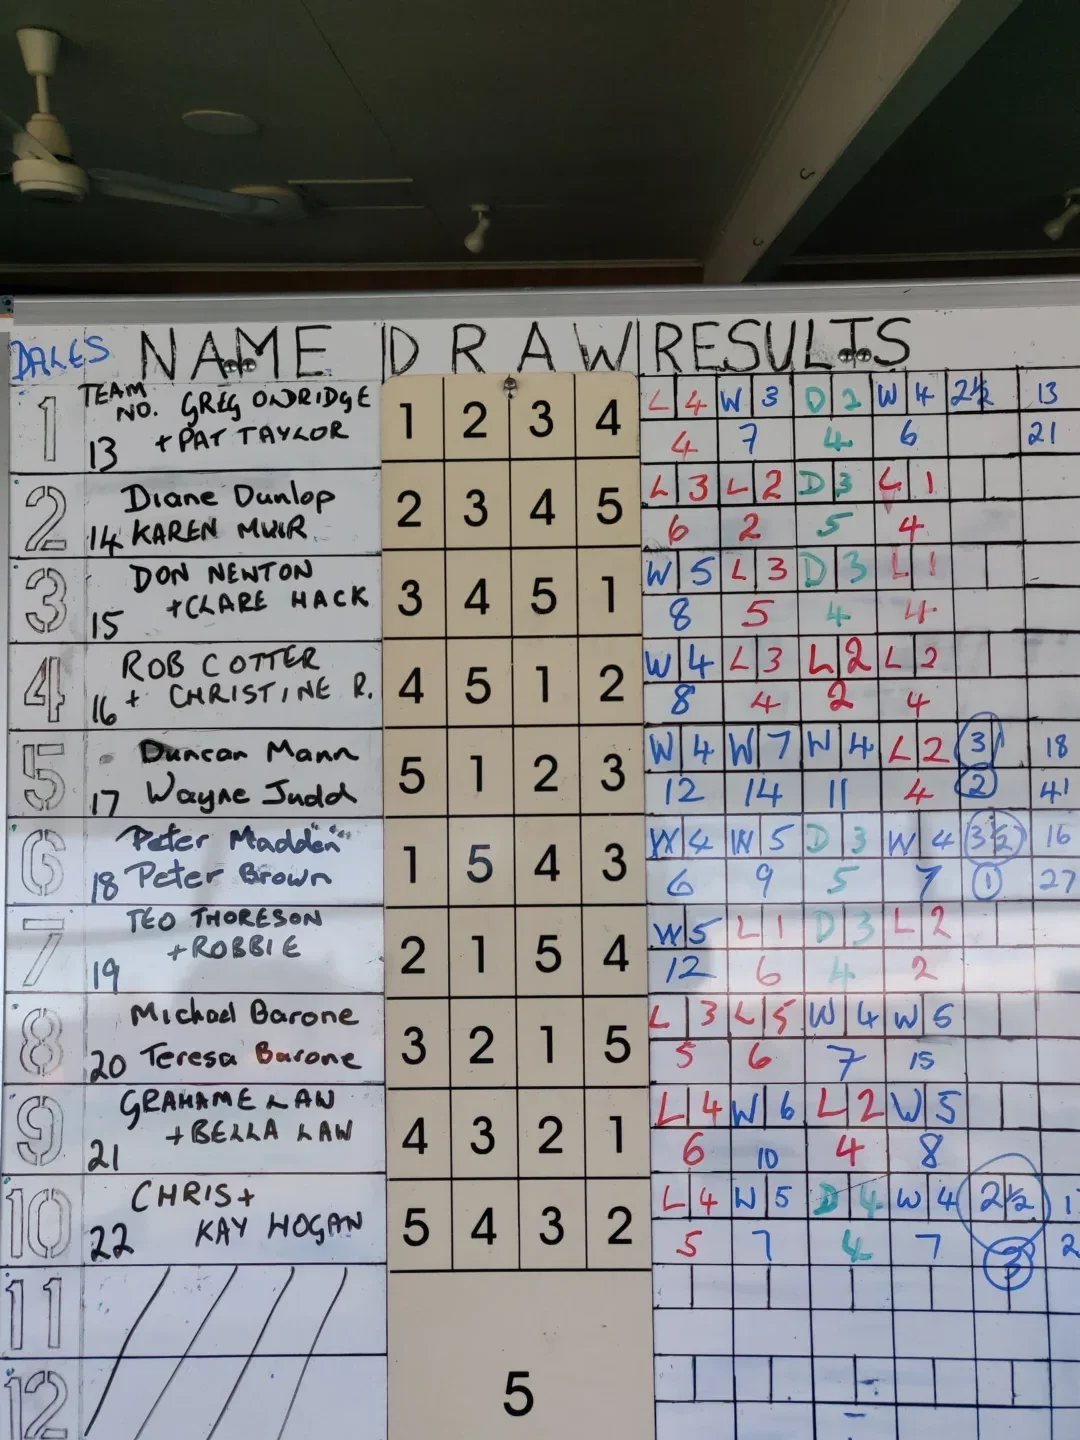 DALES NAME DRAW RESULTS
1 TEAM NO. GREG OLDRIDGE 1 2 3 4 L 4 W 3 D 2 W 4 2½ 13
13 + PAT TAYLOR 4 7 4 6 21
2 Diane Dunlop 2 3 4 5 L 3 L 2 D 3 L 1
14 KAREN MUIR 6 2 5 4
3 DON NEWTON 3 4 5 1 W 5 L 3 D 3 L 1
15 + CLARE HACK 8 5 4 4
4 ROB COTTER 4 5 1 2 W 4 L 3 L 2 L 2
16 + CHRISTINE R. 8 4 2 4
5 Duncan Mann 5 1 2 3 W 4 W 7 W 4 L 2 3 18
17 Wayne Judd 12 14 11 4 2 41
6 Peter Madden 1 5 4 3 W 4 W 5 D 3 W 4 3½ 16
18 Peter Brown 6 9 5 7 1 27
7 TEO THORESON 2 1 5 4 W 5 L 1 D 3 L 2
19 + ROBBIE 12 6 4 2
8 Michael Barone 3 2 1 5 L 3 L 5 W 4 W 6
20 Teresa Barone 5 6 7 15
9 GRAHAME LAW 4 3 2 1 L 4 W 6 L 2 W 5
21 + BELLA LAW 6 10 4 8
10 CHRIS + 5 4 3 2 L 4 W 5 D 4 W 4 2½
22 KAY HOGAN 5 7 4 7 3
11
12 5